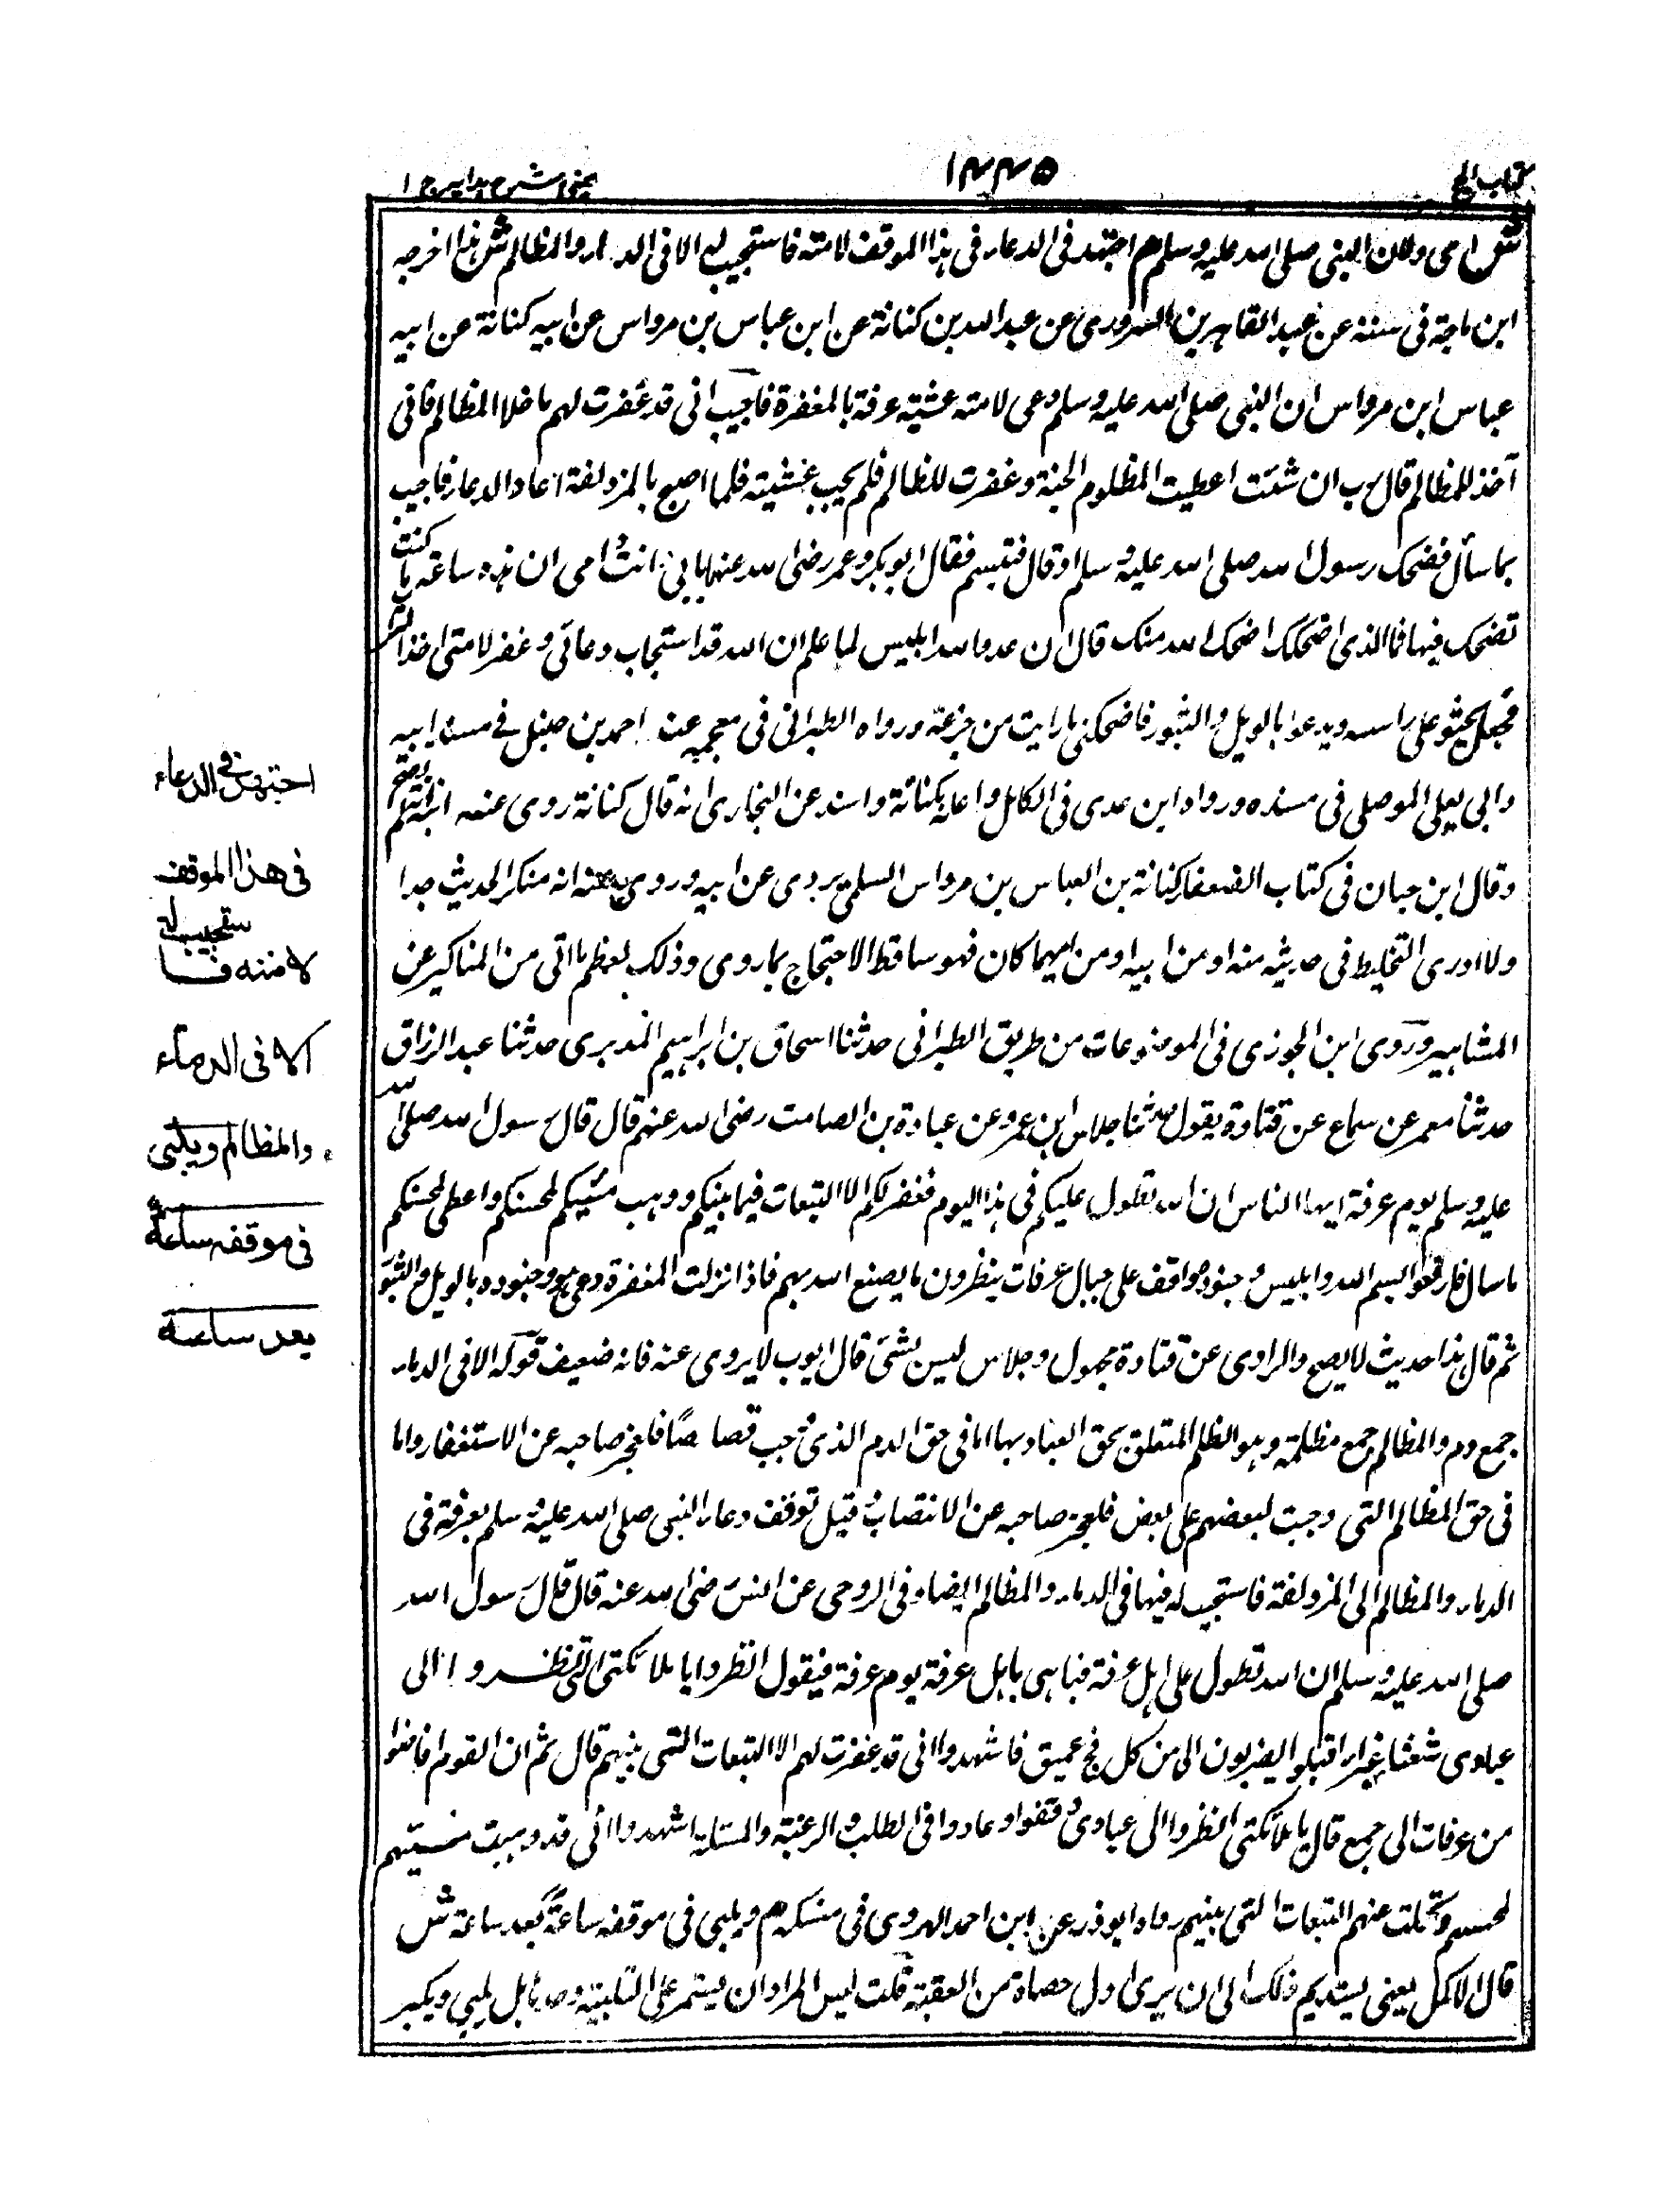 كتاب الحج
۱۴۴۵
عينى شرح هدايہ ج ۱
ش اى ولان النبى صلى الله عليه وسلم م اجتهد فى الدعاء فى هذا الموقف لامته فاستجيب له الا فى الدماء والمظالم ش هذا اخرجه
ابن ماجة فى سننه عن عبد القاهر بن السرورى عن عبد الله بن كنانة عن ابن عباس بن مرداس عن ابيه كنانة عن ابيه
عباس ابن مرداس ان النبى صلى الله عليه وسلم دعى لامته عشية عرفة بالمغفرة فاجيب انى قد غفرت لهم ما خلا المظالم فانى
آخذ للمظالم قال رب ان شئت اعطيت المظلوم الجنة وغفرت للظالم فلم يجيب عشيته فلما اصبح بالمزدلفة اعاد الدعاء فاجيب
بما سأل فضحك رسول الله صلى الله عليه وسلم او قال فتبسم فقال ابو بكر وعمر رضى الله عنهما بابى انت وامى ان هذه ساعة ما كنت
تضحك فيها فما الذى اضحكك اضحك الله سنك قال ان عدو الله ابليس لما علم ان الله قد استجاب دعائى وغفر لامتى اخذ التراب
فجعل يحثو على راسه ويدعوا بالويل والثبور فاضحكنى ما رايت من جزعه ورواه الطبرانى فى معجمه عند احمد بن حنبل فى مسند ابيه
وابى يعلى الموصلى فى مسنده ورواه ابن عدى فى الكامل واعله بكنانة واسند عن البخارى انه قال كنانة روى عنه ابنه لم يصح
وقال ابن حبان فى كتاب الضعفاء كنانة بن العباس بن مرداس السلمى يروى عن ابيه وروى عنه ابنه منكر الحديث جدا
ولا ادرى التخليط فى حديثه منه او من ابيه او من ايهما كان فهو ساقط الاحتجاج بما روى وذلك لعظم ما اتى من المناكير عن
المشاهير وروى ابن الجوزى فى الموضوعات من طريق الطبرانى حدثنا اسحاق بن ابراهيم الدبرى حدثنا عبد الرزاق
حدثنا معمر عن سماع عن قتادة يقول حدثنا جلاس ابن عمرو عن عبادة بن الصامت رضى الله عنهم قال قال رسول الله صلى الله
عليه وسلم يوم عرفة ايها الناس ان الله تطول عليكم فى هذا اليوم فغفر لكم الا التبعات فيما بينكم ووهب مسيئكم لمحسنكم واعطى لمحسنكم
ما سال فارفعوا بسم الله وابليس وجنوده واقف على جبال عرفات ينظرون ما يصنع الله بهم فاذا نزلت المغفرة دعى هو وجنوده بالويل والثبور
ثم قال هذا حديث لا يصح والراوى عن قتادة مجهول وجلاس ليس بشئ قال ايوب لا يروى عنه فانه ضعيف قوله الا فى الدماء
جمع دم والمظالم جمع مظلمة وهو الظلم المتعلق بحق العباد بها اما فى حق الدم الذى وجب قصاصًا فلعجز صاحبه عن الاستغفار واما
فى حق المظالم التى وجبت لبعضهم على بعض فلعجز صاحبه عن الانتصاف قيل توقف دعاء النبى صلى الله عليه وسلم بعرفة فى
الدماء والمظالم الى المزدلفة فاستجيب له فيها فى الدماء والمظالم ايضا وفى الروحى عن انس رضى الله عنه قال قال رسول الله
صلى الله عليه وسلم ان الله تطول على اهل عرفة فباهى باهل عرفة يوم عرفة فيقول انظروا يا ملائكتى انظروا الى
عبادى شعثا غبرا اقبلوا يضربون الى من كل فج عميق فاشهدوا انى قد غفرت لهم الا التبعات التى بينهم قال ثم ان القوم افاضوا
من عرفات الى جمع قال يا ملائكتى انظروا الى عبادى وقفوا وعادوا فى الطلب والرغبة والمسئلة اشهدوا انى قد وهبت مسيئهم
لمحسنهم وتحملت عنهم التبعات التى بينهم رواه ابو ذر عن ابن احمد الهروى فى منسكه م ويلبى فى موقفه ساعةً بعد ساعة ش
قال الاكمل يعنى يستديم ذلك الى ان يرى اول حصاة من العقبة قلت ليس المراد ان يستمر على التلبية وحدها بل يلبى ويكبر
اجتهد فى الدعاء
فى هذا الموقف
لامته فاستجيب له
الا فى الدماء
والمظالم ويلبى
فى موقفه ساعة
بعد ساعة